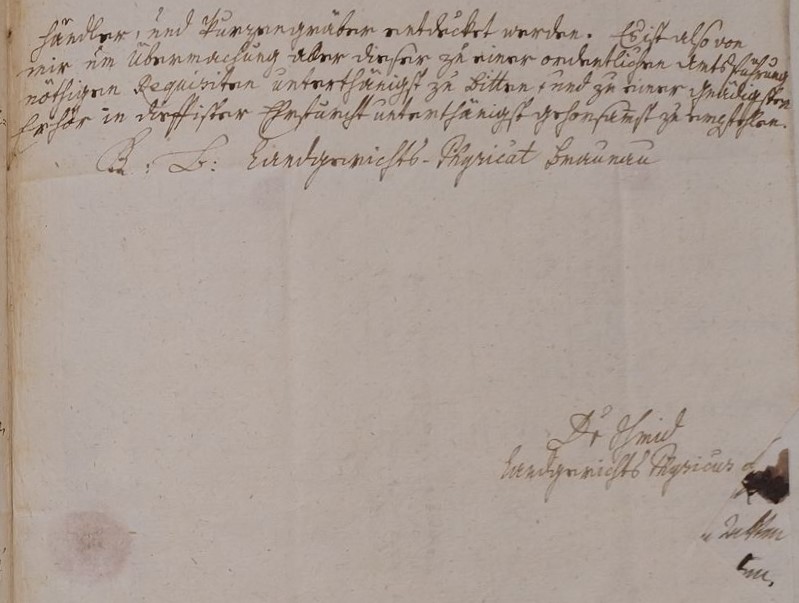 händler, und Wurzengräber entdecket werden. Es ist also von
mir um Übermachung aller dieser zu einer ordentlichen Amts Führung
nöthigen Requisiten unterthänigst zu bitten, und zu einer gnädigsten
Erhör in tieffister Ehrfurcht unterthänigst gehorsamst zu empfehlen.
K: L: Landgerichts-Physicat Braunau
Dr Schmid
Landgerichts Physicus